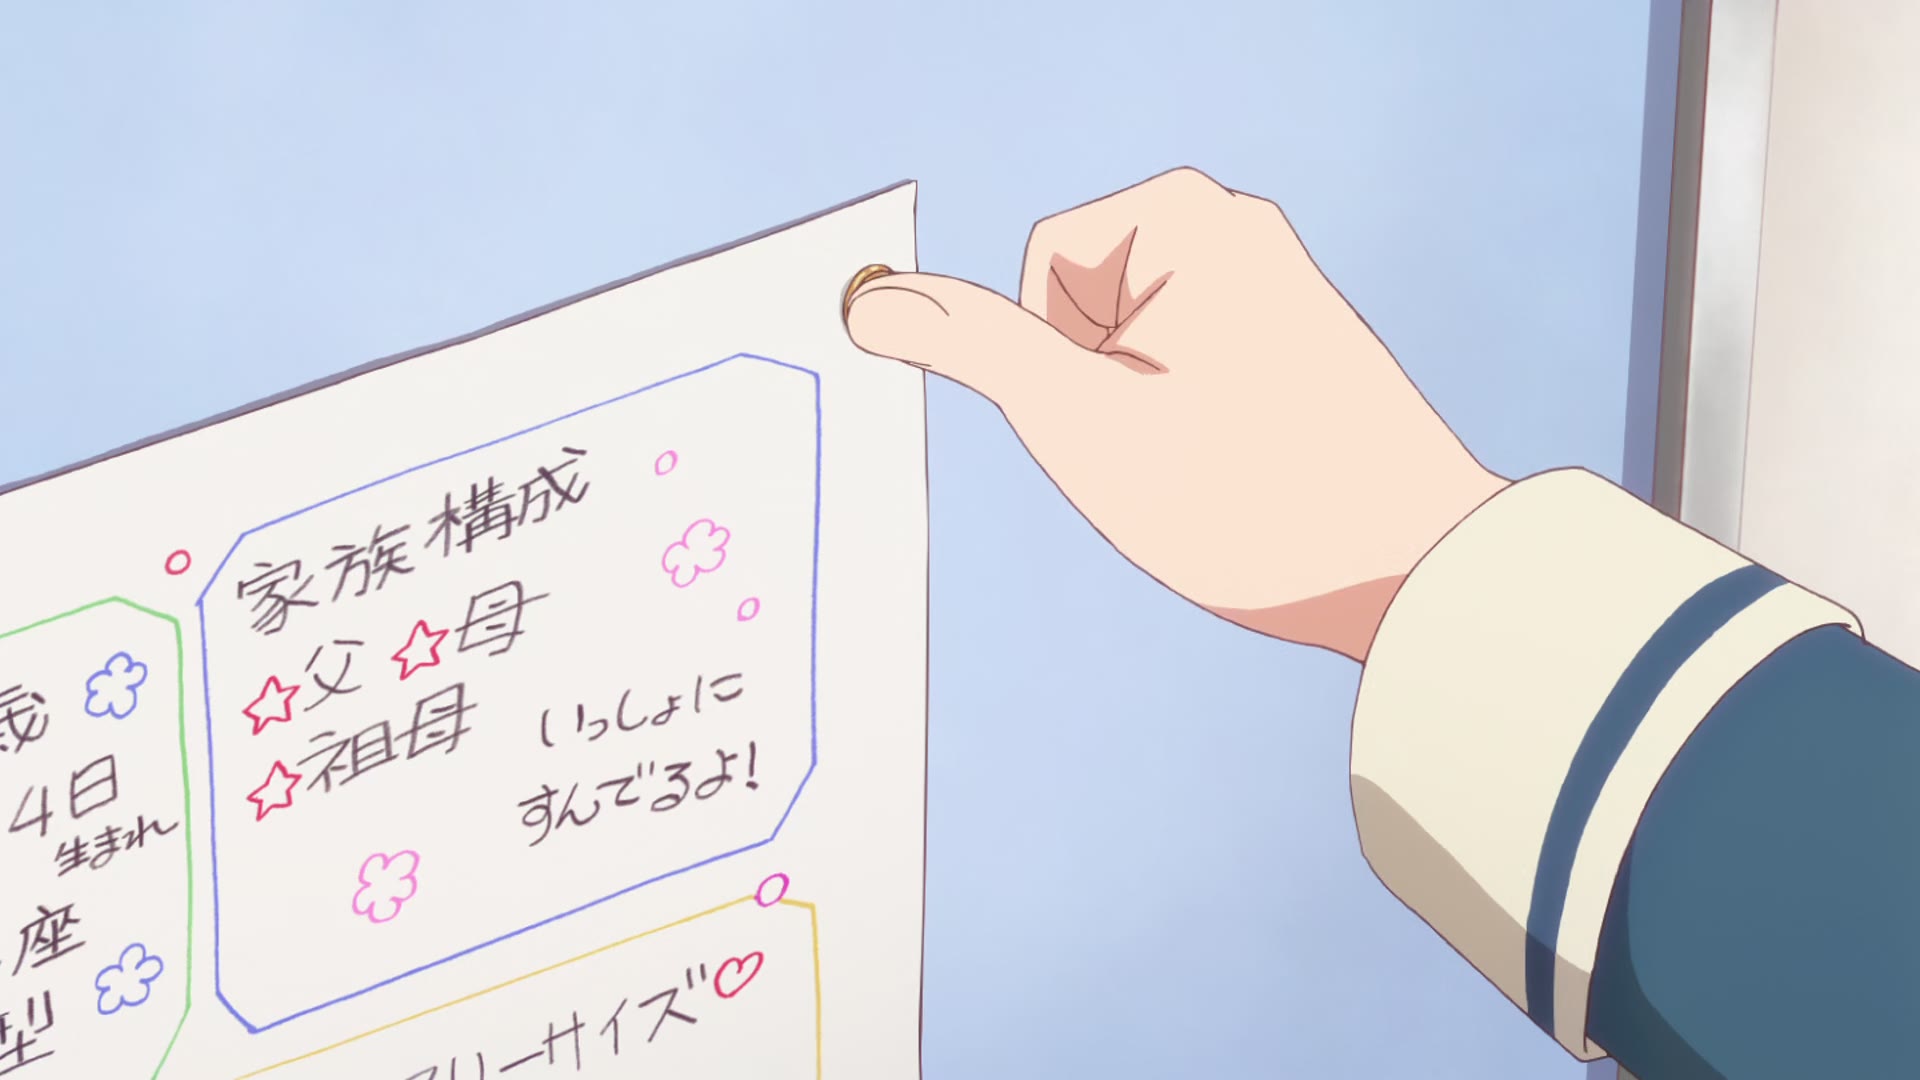 歳
4日
生まれ
座
型
家族構成
☆父 ☆母
☆祖母
いっしょに
すんでるよ!
リーサイズ♡